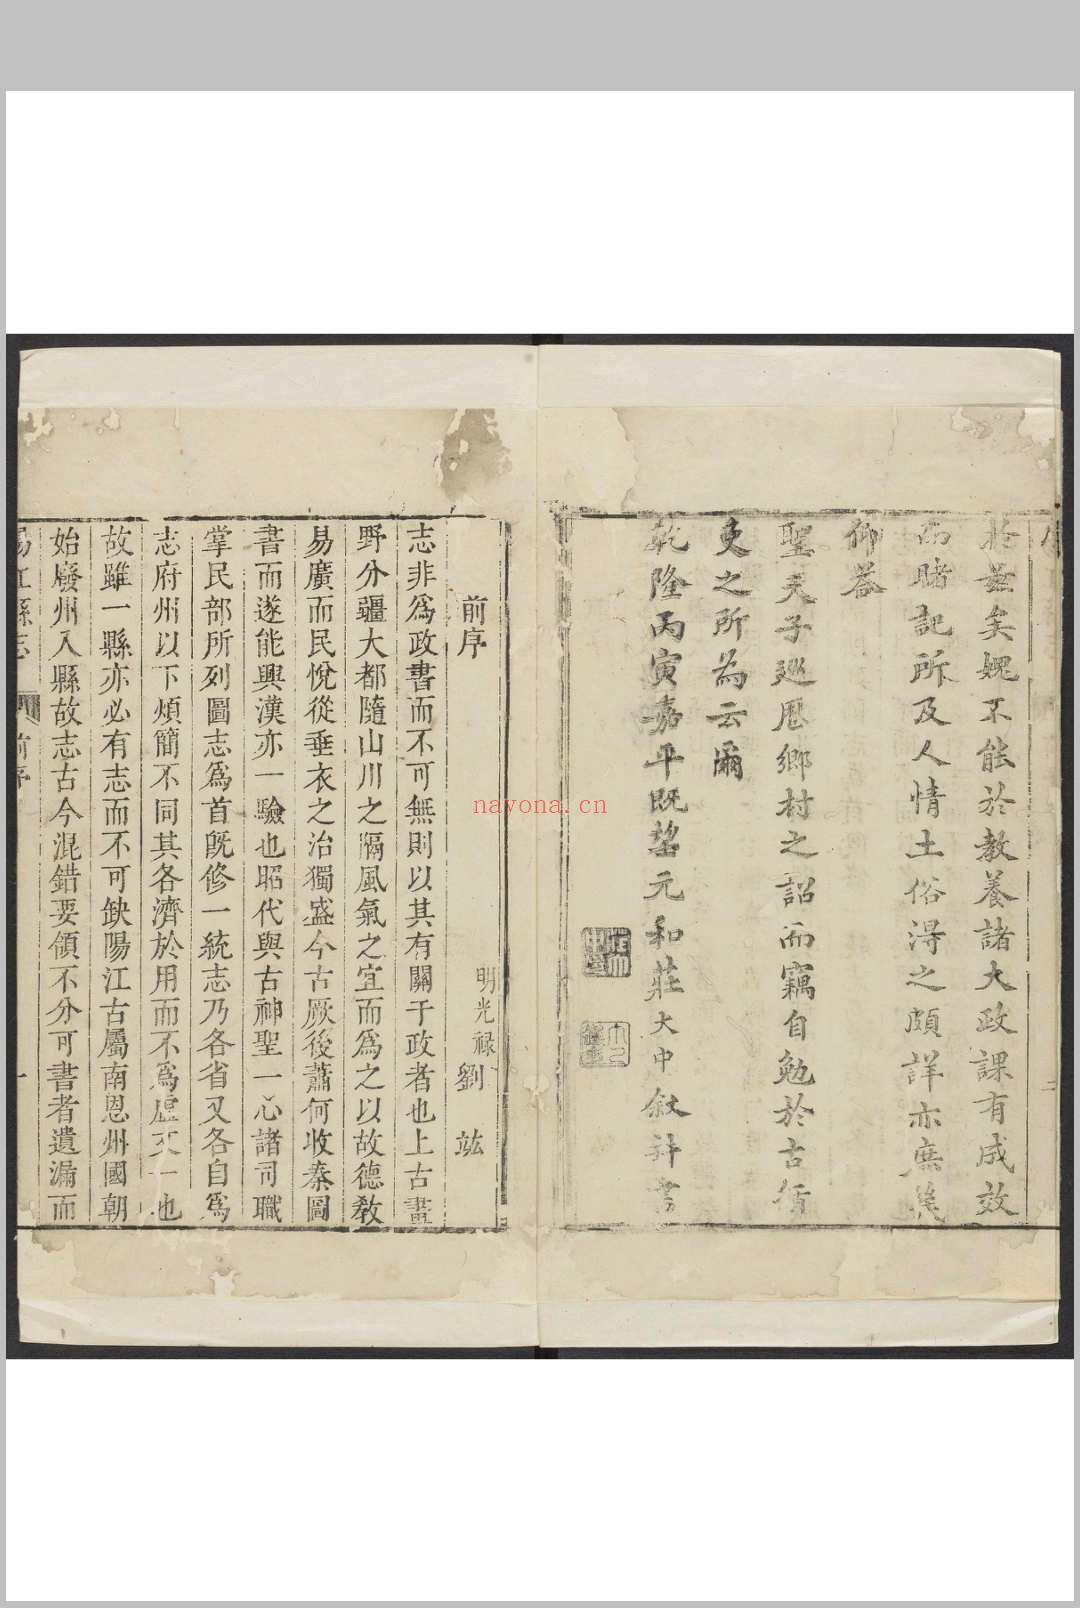 於茲矣媿不能於教養諸大政課有成效
而睹記所及人情土俗得之頗詳亦庶幾
仰荅
聖天子廵厯鄉村之詔而竊自勉於古循
吏之所為云爾
乾隆丙寅嘉平旣望元和莊大中敘幷書
前序
明光禄劉　竑
志非爲政書而不可無則以其有關于政者也上古畫
野分疆大都隨山川之隔風氣之宜而爲之以故德敎
易廣而民悅從垂衣之治獨盛今古厥後蕭何收秦圖
書而遂能興漢亦一驗也昭代與古神聖一心諸司職
掌民部所列圖志爲首旣修一統志乃各省又各自爲
志府州以下煩簡不同其各濟於用而不爲虛文一也
故雖一縣亦必有志而不可缺陽江古屬南恩州國朝
始廢州入縣故志古今混錯要領不分可書者遺漏而
陽江縣志
前序
一
nayona.cn